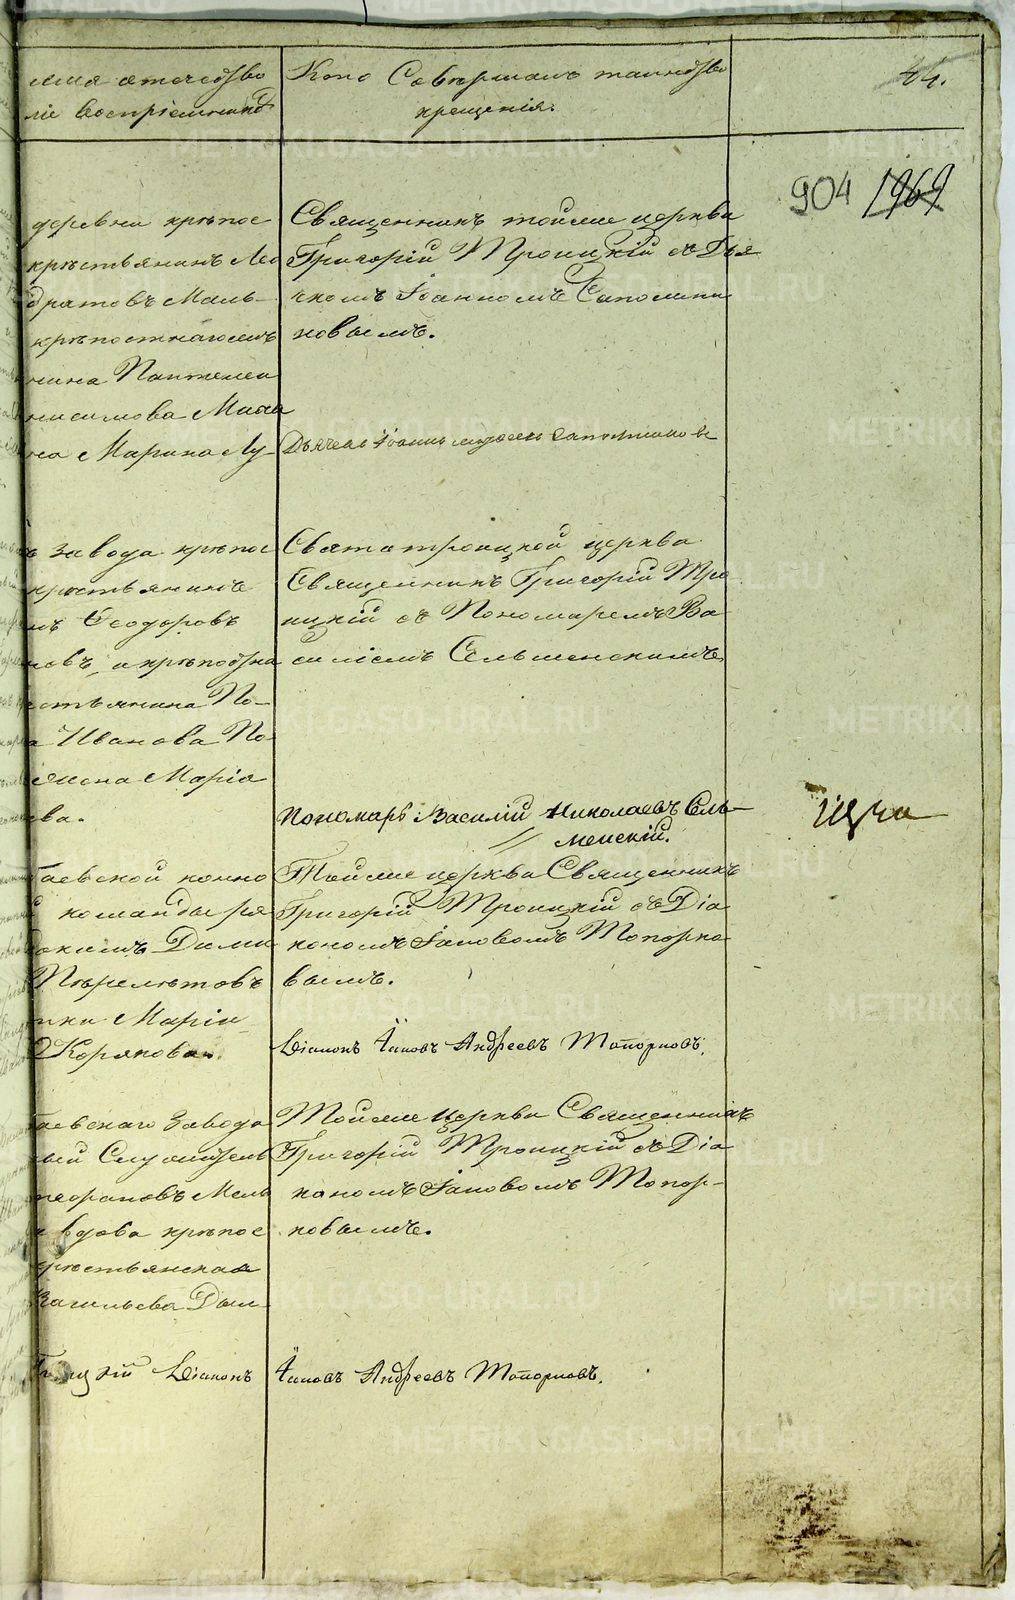 44.
904 1969
имя отечество
Кто Совершалъ таинство
крещенія.
деревни крѣпос
крѣстьянинъ Лео
дратовъ Маль-
крѣпостнагоже
нина Пантелеи
нисимова Маха
на Марина Лу-
Священникъ тойже церкви
Григорій Троицкій съ Дья
чкомъ Іоанномъ Сапожни
ковымъ.
Дьячекъ Іоаннъ Сапожниковъ
завода крѣпос
крѣстьянинъ
Ѳеодоровъ
новъ, и крѣпостна
стьянина По-
а Иванова По-
жена Марія
ева.
Святотроицкой церкви
Священникъ Григорій Тро
ицкій съ Пономаремъ Ва
силіемъ Сельменскимъ
Пономарь Василій Николаевъ Сель-
менскій.
таевской конно
команды ря
Дами
Перелетовъ
ика Марія
Корякова.
Тойже церкви Священникъ
Григорій Троицкій съ Діа
кономъ Іаковомъ Топорко
вымъ.
Діаконъ Іаковъ Андреевъ Топорковъ.
таевскаго завода
ный Служитель
Мель
вдова крѣпос
крѣстьянская
Васильева Дым-
Тойже Церкви Священникъ
Григорій Троицкій съ Діа
кономъ Іаковомъ Топор-
ковымъ.
Троицкій Діаконъ Іаковъ Андреевъ Топорковъ.
METRIKI.GASO-URAL.RU